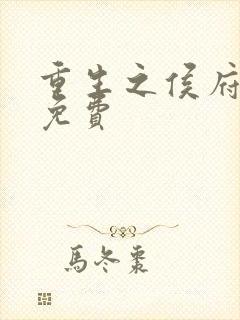 重生之侯府
免費
馬冬棗